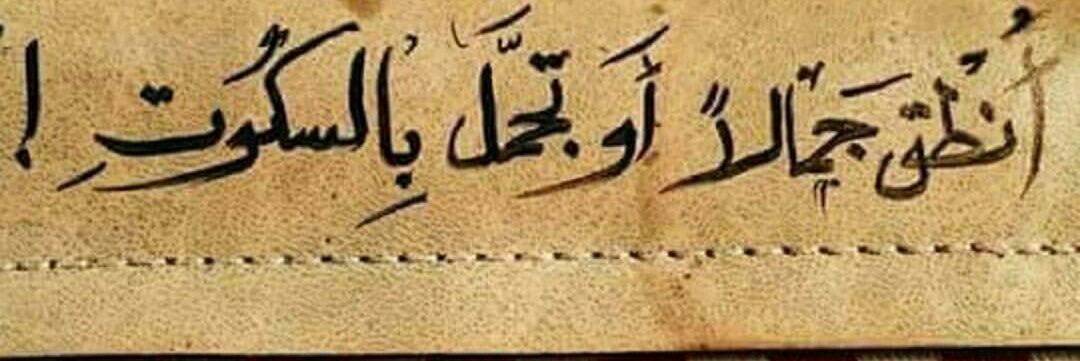 أُنطق جَمالاً أَو تجمَّل بِالسكُوتِ !